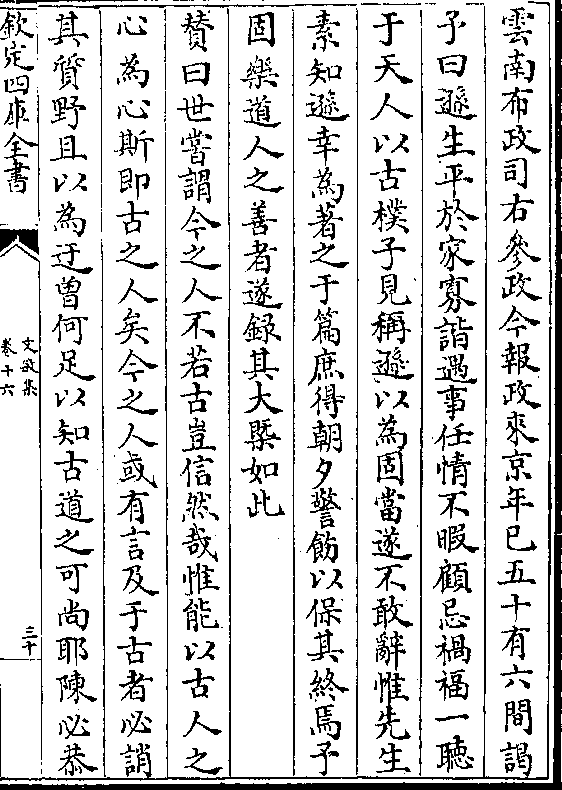 雲南布政司右參政今報政來京年已五十有六間謁
予曰遜生平於家寡諧遇事任情不暇顧忌禍福一聽
于天人以古樸子見稱遜以為固當遂不敢辭惟先生
素知遜幸為著之于篇庶得朝夕警飭以保其終焉予
固樂道人之善者遂録其大槩如此
賛曰世嘗謂今之人不若古豈信然哉惟能以古人之
心為心斯即古之人矣今之人或有言及于古者必誚
其質野且以為迂曽何足以知古道之可尚耶陳必恭
欽定四庫全書
文敏集
卷十六
三十